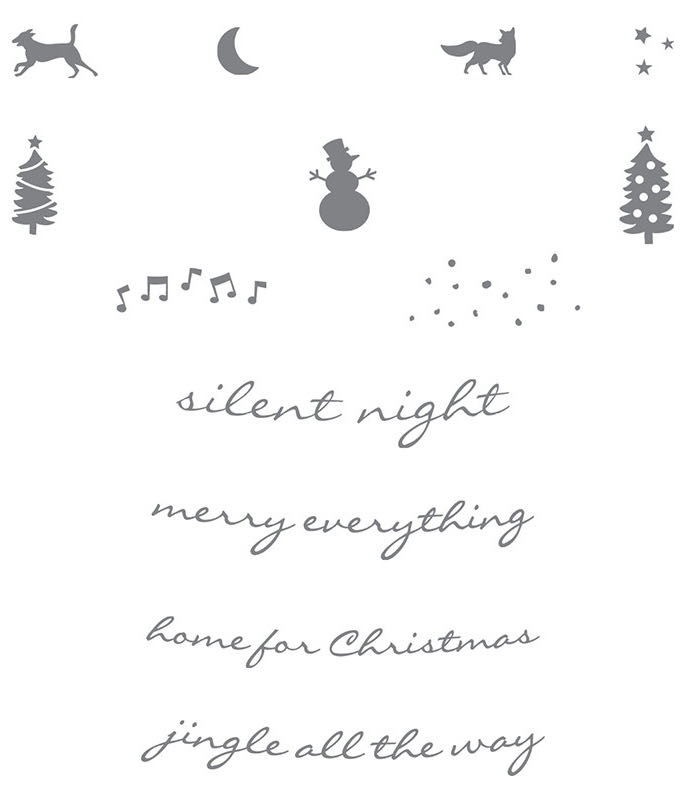 silent night
merry everything
home for Christmas
jingle all the way